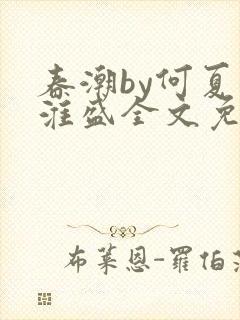 春潮by何夏
淮盛全文免
布莱恩-罗伯